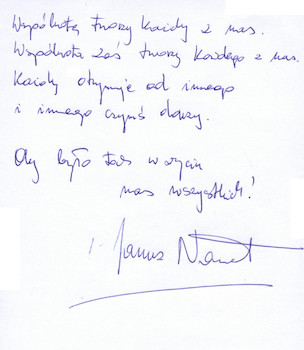 Wspólnotę tworzy każdy z nas.
Wspólnota zaś tworzy każdego z nas.
Każdy otrzymuje od innego
i innego czymś darzy.
Oby było tak w życiu
nas wszystkich!
Janusz